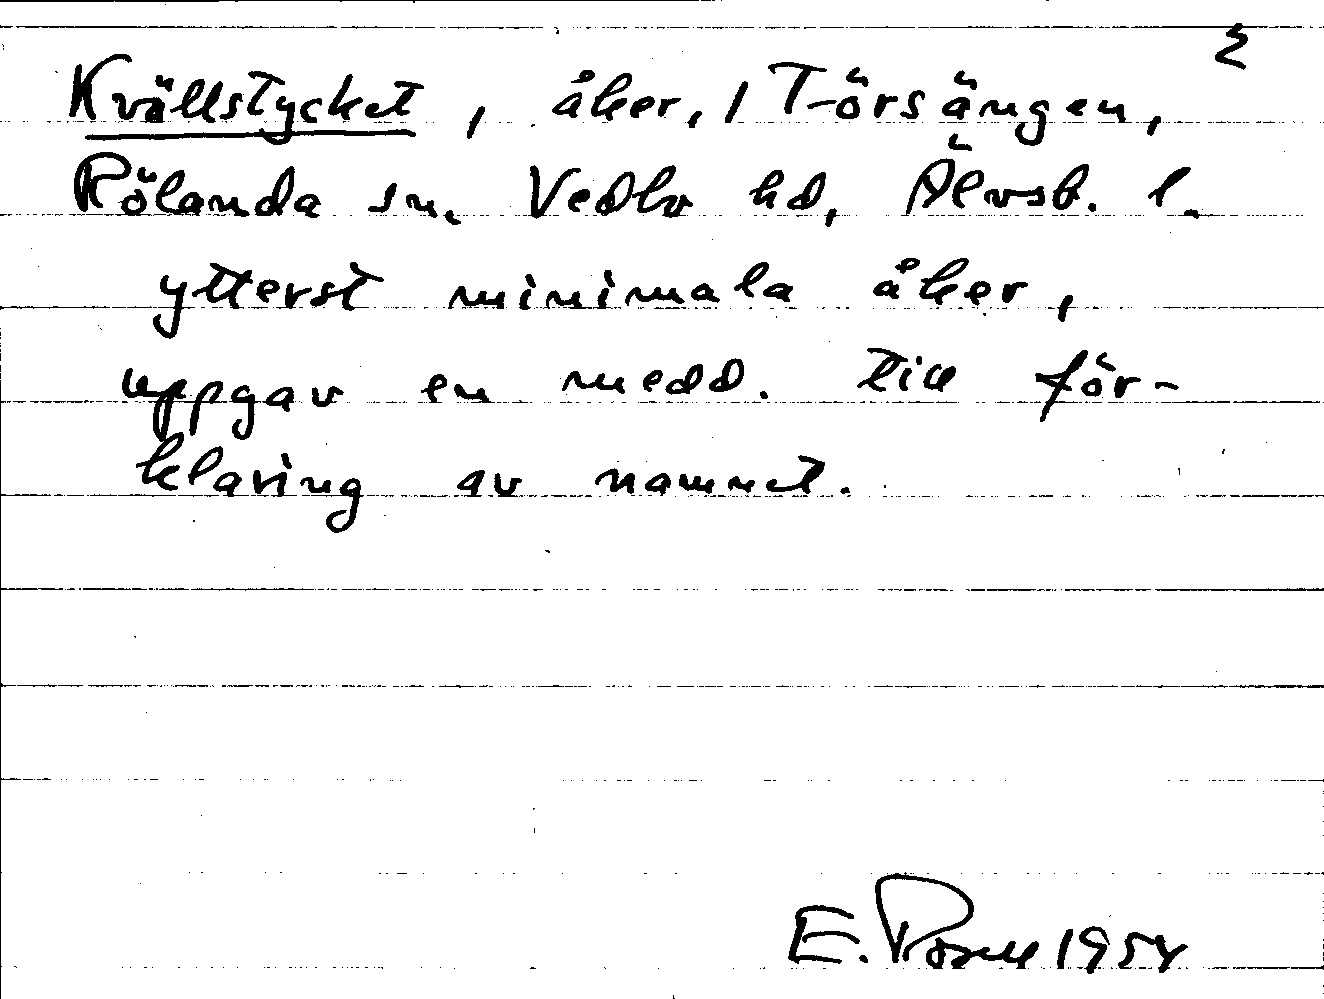 2
Kvällstycket, åker, 1 Törsängen,
Rölanda sn. Vedbo hd, Älvsb. l.
ytterst minimala åker,
uppgav en medd. till för-
klaring av namnet.
E. Rosell 1954